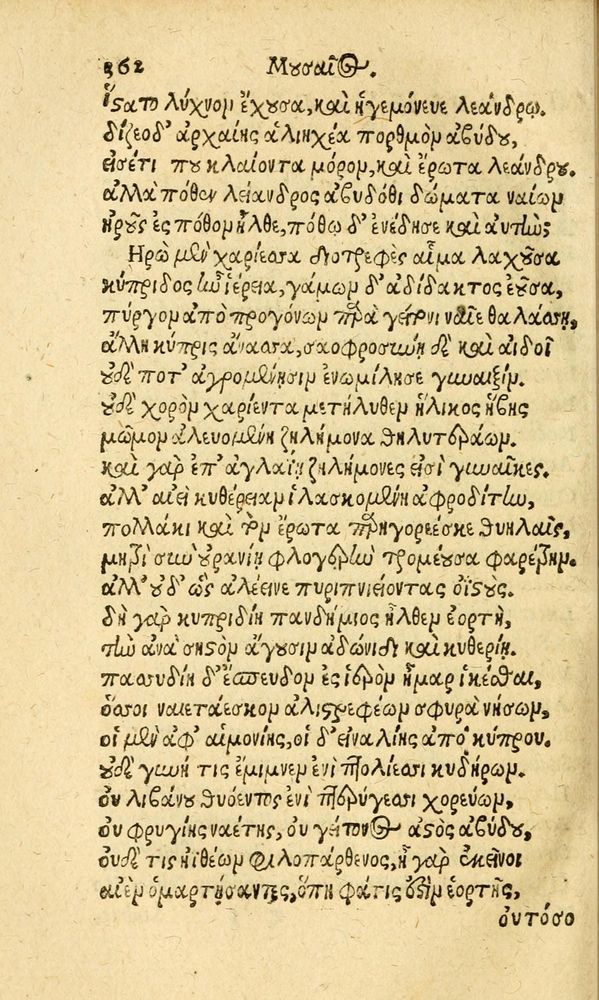 362 Μουσαῖος.
ἵστατο λύχνον ἔχουσα, καὶ ἡγεμόνευε λεάνδρῳ.
δίζεο δ' ἀρχαίης ἁλιηχέα πορθμὸν ἀβύδου,
εἰσέτι που κλαίοντα μόρον, καὶ ἔρωτα λεάνδρου.
ἀλλὰ πόθεν λείανδρος ἀβυδόθι δώματα ναίων
ἡροῦς ἐς πόθον ἦλθε, πόθῳ δ' ἐνέδησε καὶ αὐτήν;
Ηρὼ μὲν χαρίεσσα διοτρεφὲς αἷμα λαχοῦσα
κύπριδος ἦν ἱέρεια, γάμων δ' ἀδίδακτος ἐοῦσα,
πύργον ἀπὸ προγόνων παρὰ γείτονι ναῖε θαλάσσῃ,
ἄλλη κύπρις ἄνασσα, σαοφροσύνῃ δὲ καὶ αἰδοῖ
οὐδέ ποτ' ἀγρομένῃσιν ἐνωμίλησε γυναιξίν.
οὐδὲ χορὸν χαρίεντα μετήλυθεν ἥλικος ἥβης
μῶμον ἀλευομένη ζηλήμονα θηλυτεράων.
καὶ γὰρ ἐπ' ἀγλαΐῃ ζηλήμονές εἰσι γυναῖκες.
ἀλλ' αἰεὶ κυθέρειαν ἱλασκομένη ἀφροδίτην,
πολλάκι καὶ τὸν ἔρωτα παρηγορέεσκε θυηλαῖς,
μητρὶ σὺν οὐρανίῃ φλογερὴν τρομέουσα φαρέτρην.
ἀλλ' οὐδ' ὣς ἀλέεινε πυριπνείοντας ὀϊστούς.
δὴ γὰρ κυπριδίη πανδήμιος ἦλθεν ἑορτὴ,
τὴν ἀνὰ σηστὸν ἄγουσιν ἀδώνιδι καὶ κυθερίῃ.
πασσυδίῃ δ' ἔσπευδον ἐς ἱερὸν ἦμαρ ἱκέσθαι,
ὅσσοι ναιετάεσκον ἁλιστρεφέων σφυρὰ νήσων,
οἱ μὲν ἀφ' αἱμονίης, οἱ δ' εἰναλίης ἀπὸ κύπρου.
οὐδὲ γυνή τις ἔμιμνεν ἐνὶ πτολίεσσι κυθήρων.
οὐ λιβάνου θυόεντος ἐνὶ πτερύγεσσι χορεύων,
οὐ φρυγίης ναέτης, οὐ γείτονος ἀστὸς ἀβύδου,
οὐδέ τις ἠϊθέων φιλοπάρθενος, ἦ γὰρ ἐκεῖνοι
αἰὲν ὁμαρτήσαντες, ὅπη φάτις ἐστὶν ἑορτῆς,
οὐ τόσο